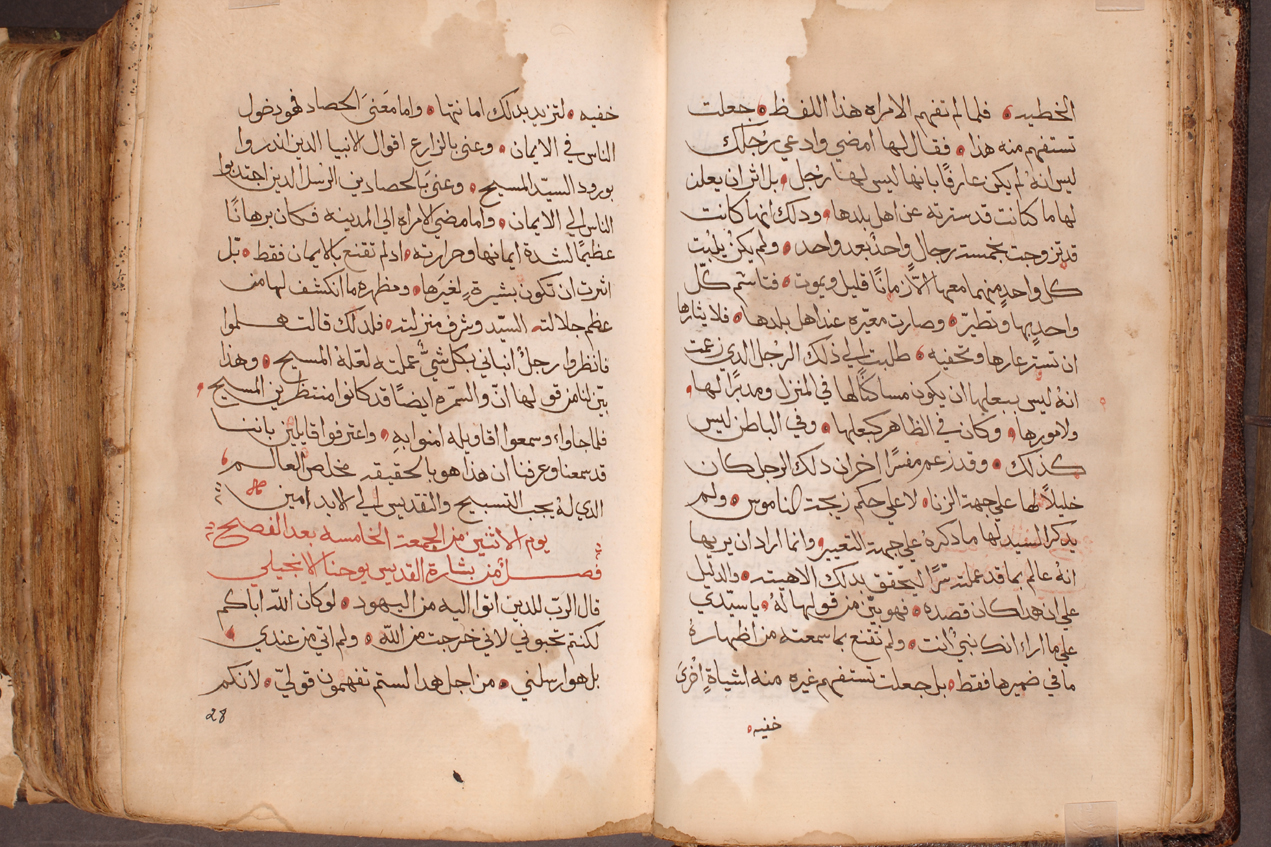 الخطيه ه فلما لم تفهم الامراه هذا اللفظ ه جعلت
تستفهم منه هذا ه فقال لها امضي وادعي رجلك
ليس انهُ لم يكن عارفًا بانها ليس لها رجل ه بل اثر ان يعلن
لها ما كانت قد سترته عن اهل بلدها ه ودلك انها كانت
قد تزوجت بخمسة رجال واحدٌ بعد واحد ه ولم يكن يلبت
كل واحدٍ منهم معها الا زمانًا قليل ويموت ه فتاستم كل
واحد بها وتطير ه وصارت معيره عند اهل بلدها ه فلايثارها
ان تستر عارها وتخفيه ه طلبت الي دلك الرجل الدي زعمت
انهُ ليس ببعلها ان يكون مساكنًا لها في المنزل ومدبرًا لها ه
ولامورها ه وكان في الظاهر كبعلها ه وفي الباطن ليس
كدلك ه وقد زعم مفسرًا اخر ان دلك الرجل كان
خليلاً لها علي جهة الزنا ه لا علي حكم زيجة الناموس ه ولم
يدكر السيد لها ما دكره علي جهة التعيير ه وانما اراد ان يريها
انهُ عالم بما قد عملته سرًا ليحقق بدلك الاهيته ه والدليل
علي ان هدا كان قصده ه فهو بين من قولها لهُ ه يا سيدي
علي ما اراء انك نبي انت ه ولم تقنع بما سمعته من اظهارهُ
ما في ضميرها فقط ه بل جعلت تستفهم غيره منه اشياةٍ اخرى
خفيه ه
خفيه ه لتزيد بدلك امانتها ه واما معَنى الحصاد فهو دخول
الناس في الايمان ه وعني بالزارع اقوال الانبيا الدين اندروا
بورود السيد المسيح ه وعني بَالحصادين الرسل الدين اجتدبوا
الناس الي الايمان ه واما مضي الامراه الي المدينه فكان برهانًا
عظيمًا لشدة ايمانها وحرارته ه اد لم تقنع بالايمان فقط ه بل
اثرت ان تكون بشيرةٍ لغيرها ه ومظهره ما انكشف لها من
عظم جلالته السيد وشرف منزلته ه فلدلك قالت هلموا
فانظروا رجلٌ انباني بكل شيٌ عملته لعلهُ المسيح ه وهذا
بين لنا من قولها ان والسمره ايضًا قد كانوا منتظرين المسيح ه
فلما جاوا ء وسمعوا اقاويله امنوا به ه واعترفوا قايلين باننا
قد سمعنا وعرفنا ان هذا هو بالحقيقه مخلص العالم ه
الدي لهُ يجب التسبيح والتقديس الي الابد امين
يوم الاتنين من الجمعة الخامسه بعد الفصح
فصل من بشارة القديس يوحنا الانجيلي
قال الرب للدين اتوا اليه من اليهود ه لو كان الله اباكم
لكنتم تحبوني لاني خرجت من الله ه ولم اتي من عندي ه
بل هو ارسلني ه من اجل هدا لستم تفهمون قولي ه لانكم
28